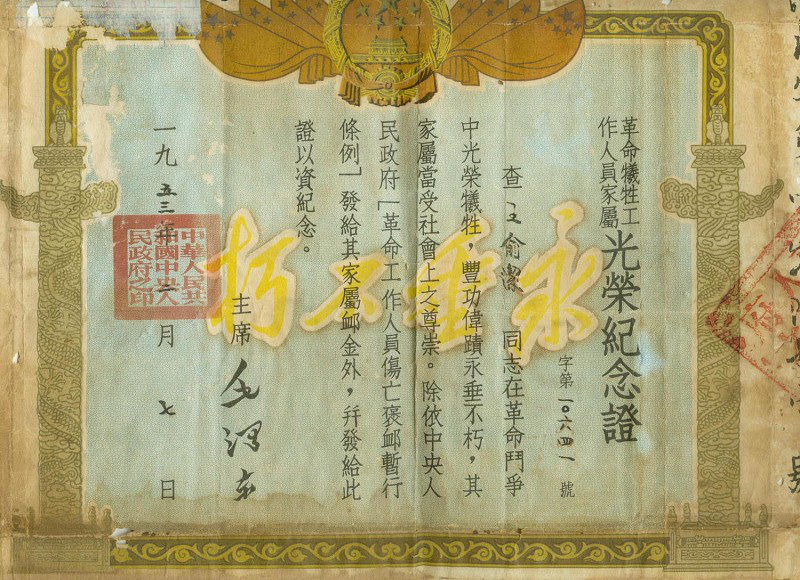 革命犧牲工
作人員家屬
光榮紀念證
字第一〇六四一號
查王俞潔同志在革命鬥爭
中光榮犧牲,豐功偉蹟永垂不朽,其
家屬當受社會上之尊崇。除依中央人
民政府「革命工作人員傷亡褒卹暫行
條例」發給其家屬卹金外,幷發給此
證以資紀念。
主席毛澤东
一九五三年三月七日
中華人民共
和國中央人
民政府之印
永垂不朽